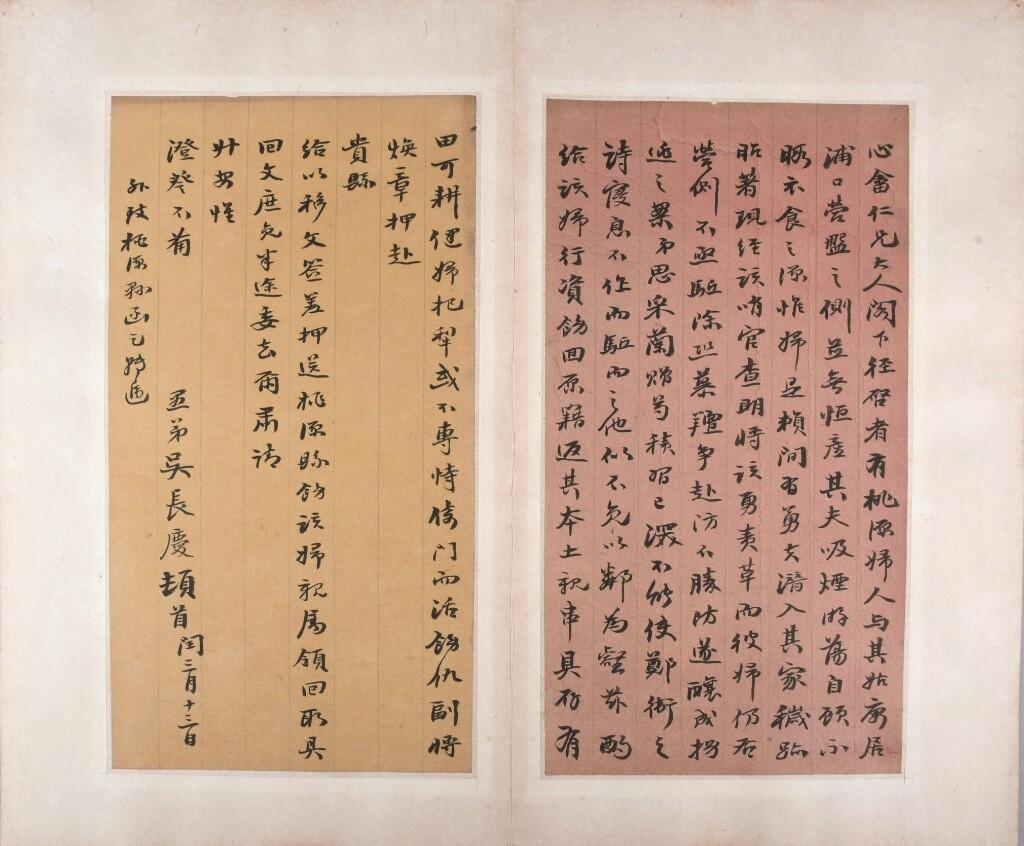 心畬仁兄大人閣下径啓者有桃源婦人与其姑寄居
浦口營盤之側並無恒產其夫吸煙游蕩自顧不
暇衣食之源惟婦是賴間有勇夫潛入其家穢跡
昭著現経該哨官查明將該勇責革而彼婦仍居
營側不亟驅除恐慕羶爭赴防不勝防遂釀成拐
逃之案弟思采蘭贈芍積習已深不能使鄭衛之
詩寢息不作而驅而之他似不免以鄰為壑茲酌
給該婦行資飭回原籍返其本土親串具存有
田可耕健婦把犁或不專恃倚門而活飭仇副將
煥章押赴
貴縣
給以移文簽差押送桃源縣飭該婦親屬領回取具
回文庶免半途委去耑肅請
升安惟
澄詧不備
愚弟吳長慶頓首閏三月十三日
外致桃源孫函乞轉遞